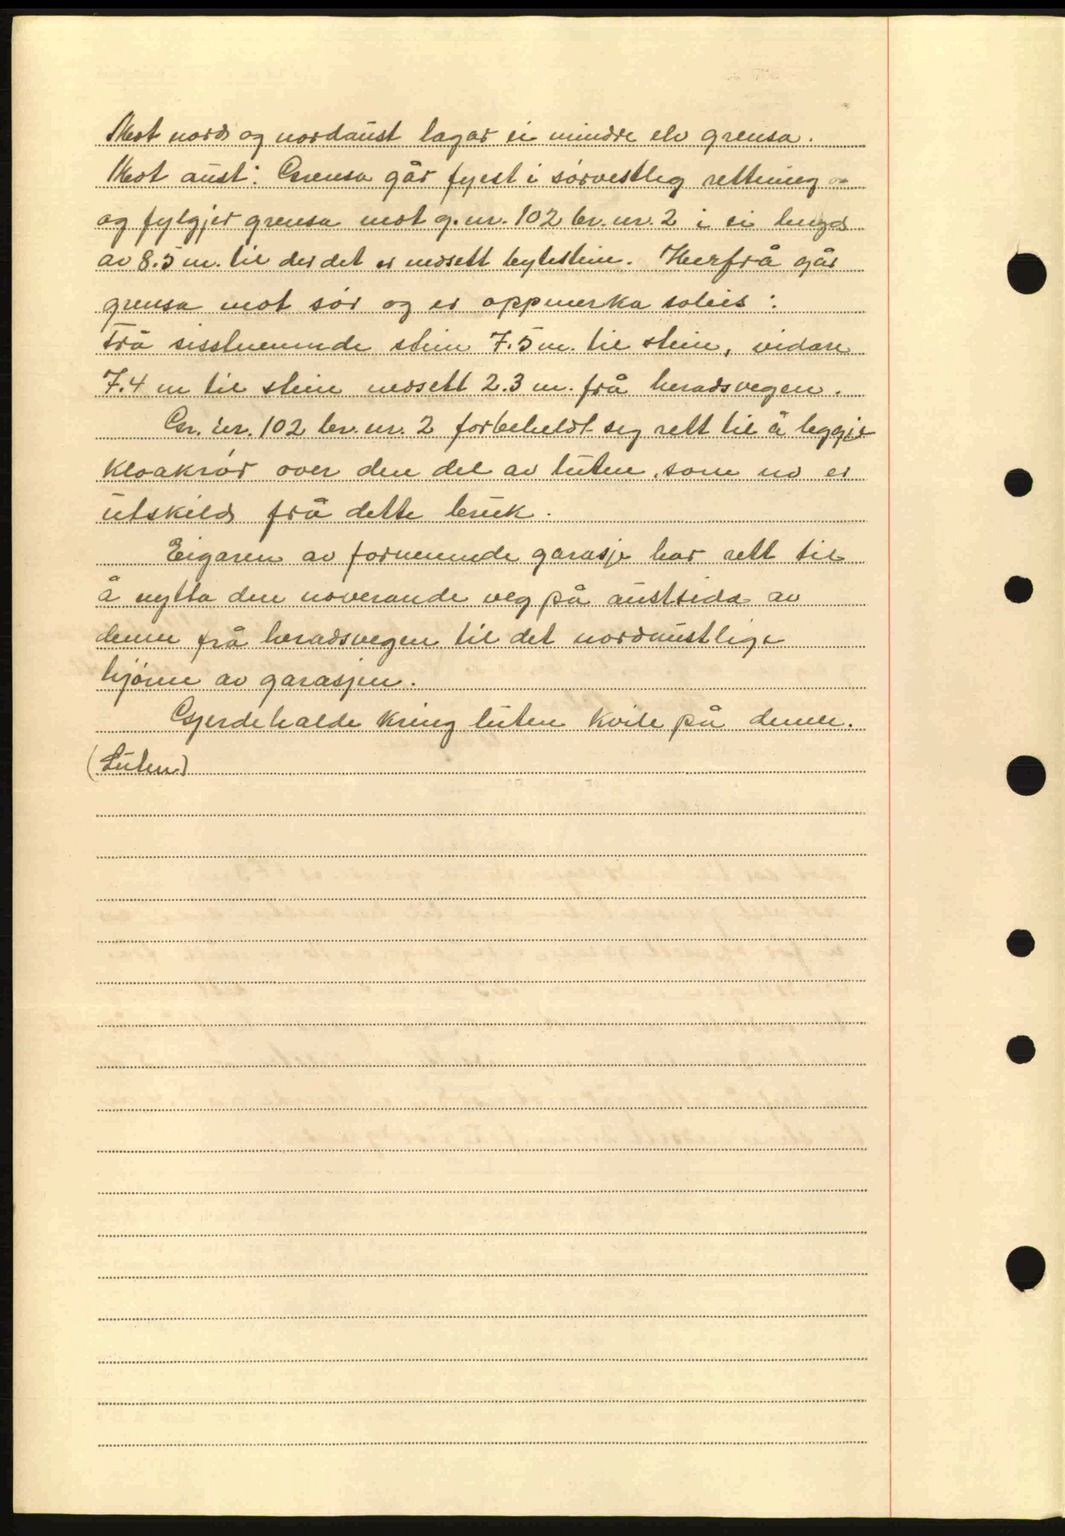 Mot nord og nordaust lagar ei mindre elv grensa.
Mot aust: Grensa går fyrst i sørvestlig rettning
og fylgjer grensa mot g.nr. 102 br. nr. 2 i ei lengd
av 8.5 m. til der det er nedsett bytestein. Herfrå går
grensa mot sør og er oppmerka soleis:
Frå sisstnemnde stein 7.5 m. til stein, vidare
7.4 m til stein nedsett 2.3 m. frå heradsvegen.
Gr. nr. 102 br. nr. 2 forbeheldt seg rett til å leggje
kloakrør over den del av luten, som no er
utskild frå dette bruk.
Eigaren av fornemnde garasje har rett til
å nytta den noverande veg på austsida av
denne frå heradsvegen til det nordaustlige
hjørne av garasjen.
Gjerdehalde kring luten kvile på denne.
(Luten)